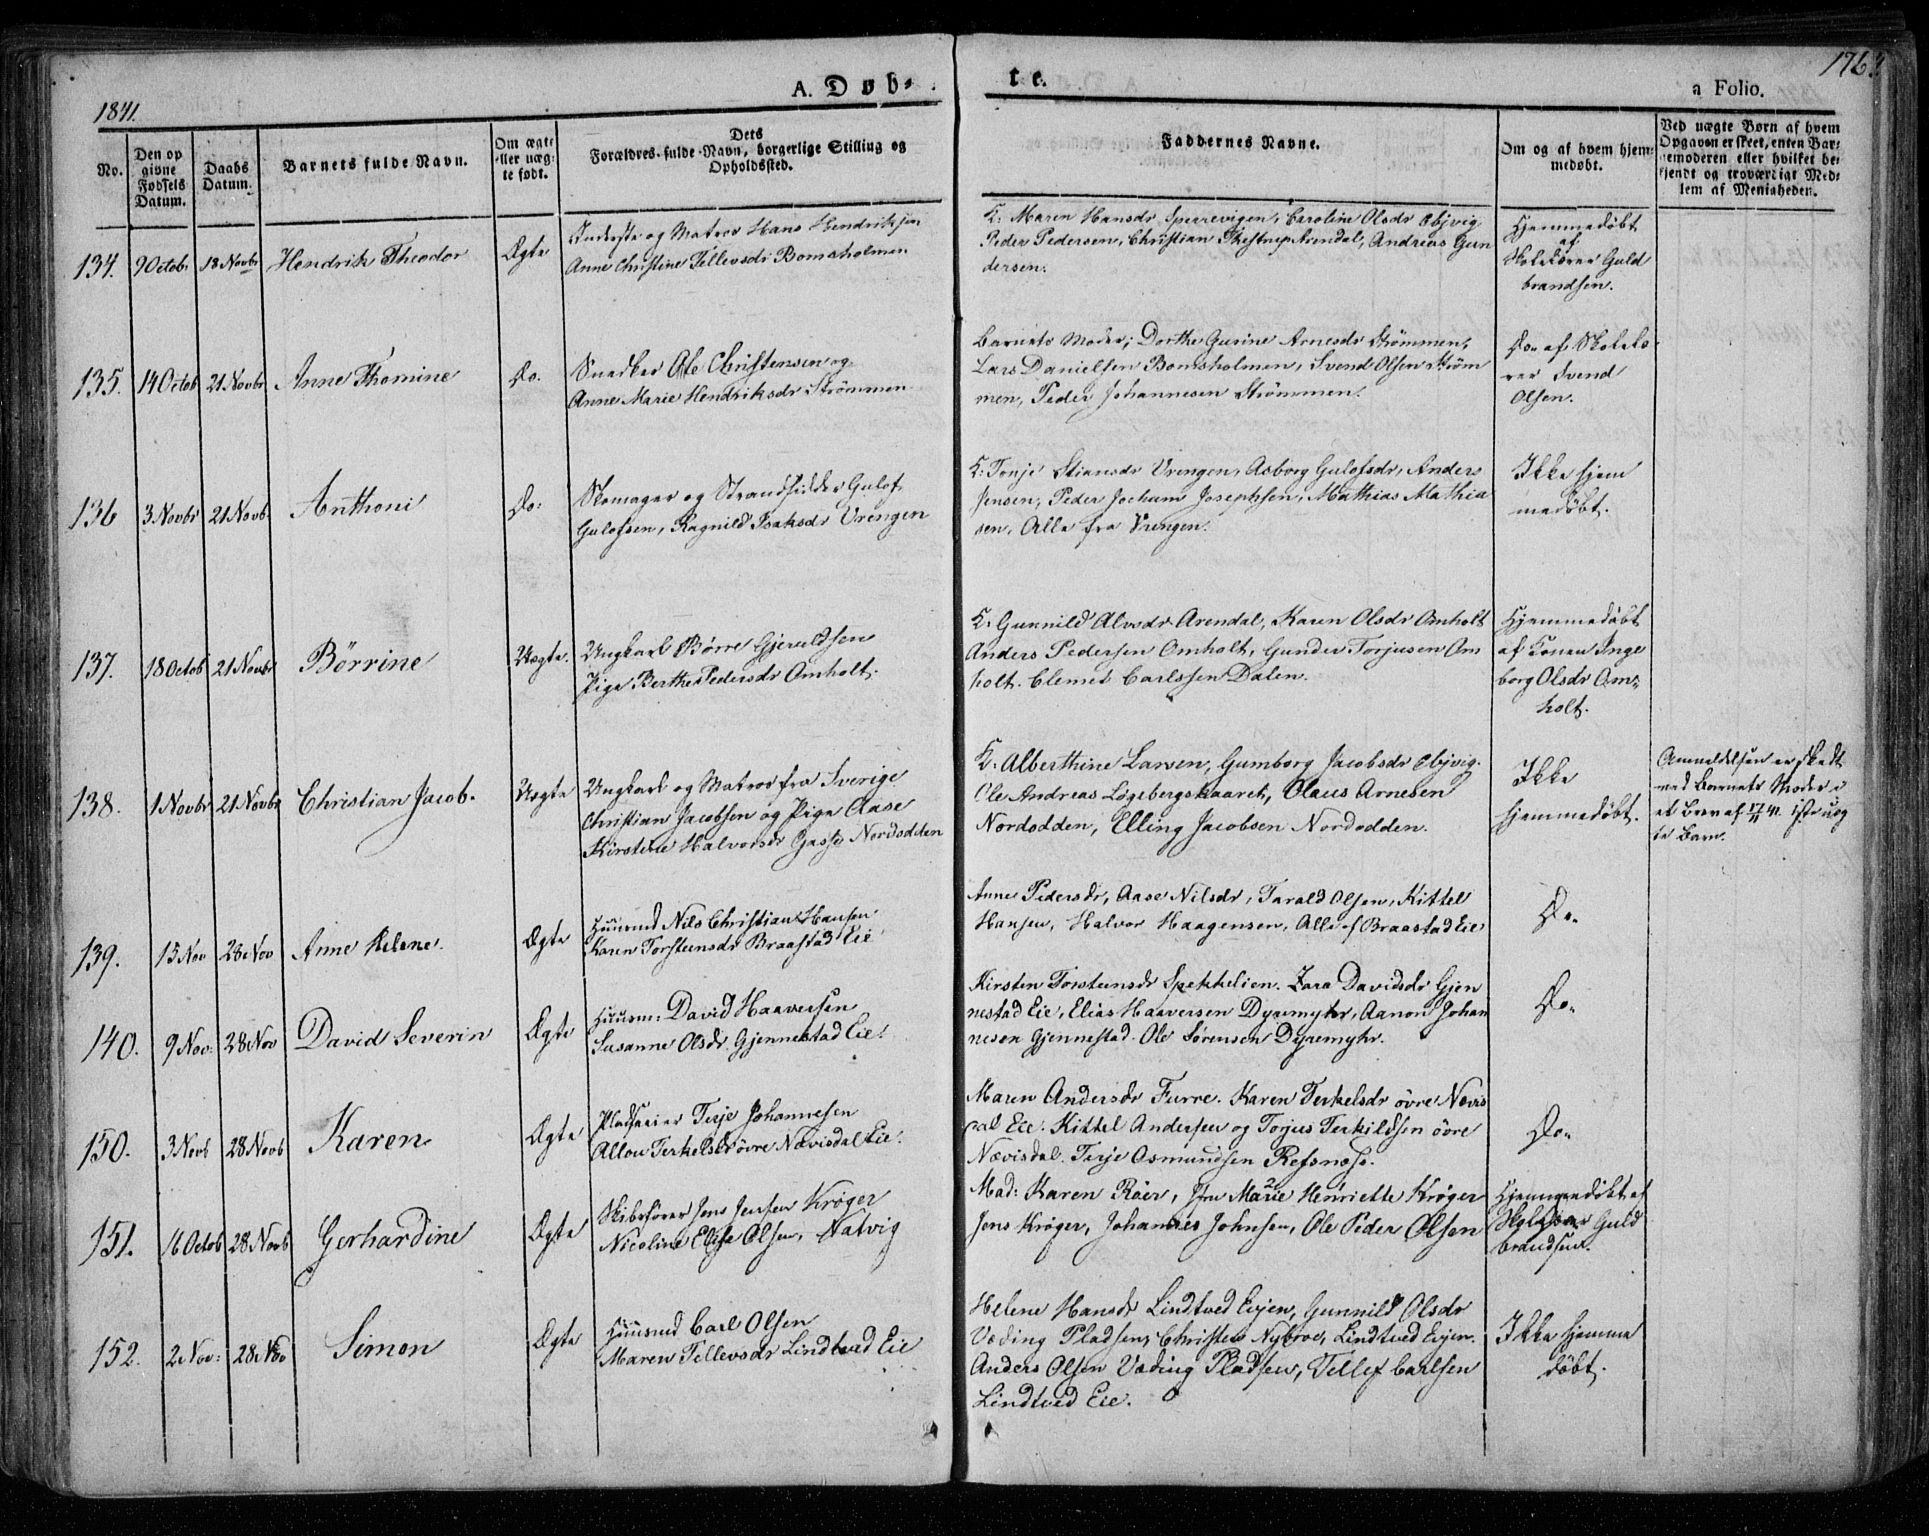 1841.
A. Døb-
te.
176.
a Folio.
No.
Den op
givne
Fødsels
Datum.
Daabs
Datum.
Barnets fulde Navn.
Om ægte
eller uæg-
te født.
Dets
Forældres fulde Navn, borgerlige Stilling og
Opholdssted.
Faddernes Navne.
Om og af hvem hjem-
medøbt.
Ved uægte Børn af hvem
Opgaven er skeet, enten Bar-
nemoderen eller hvilket be-
kjendt og troværdigt Med-
lem af Menigheden.
134. 9 Octob 18 Novbr Hendrik Theodor Ægte
Inderste og Matros Hans Hendriksen
Anne Christine Tellevsdr Bomsholmen
K: Maren Hansdr Sperrevigen, Caroline Olsdr Objvig
Peder Pedersen, Christian Arendal, Andreas Gun
dersen.
Hjemmedøbt
af
Skolelærer Guld
brandsen.
135. 14 Octob 21 Novbr Anne Thomine Do.
Snedker Ole Christensen og
Anne Marie Hendriksdr Strømmen
Barnets Moder, Dorthe Gurine Arnesdr Strømmen,
Lars Danielsen Bomsholmen, Svend Olsen Strøm
men, Peder Johannesen Strømmen.
Do. af Skolelæ-
rer Svend
Olsen.
136 3 Novbr 21 Novb. Anthoni Do:
Skomager og Strandsidder Gulof
Gulofsen, Ragnild Isaksdr Vrengen
K: Tonje Stiansdr Vrengen, Asborg Gulofsdr, Anders
Jensen, Peder Jochum Josephsen, Mathias Mathia
sen, Alle fra Vrengen.
Ikke hjem
medøbt.
137. 18 Octob 21 Novbr Börrine Uægte.
Ungkarl Børre Gjeruldsen
Pige Berthe Pedersdr Omholt.
K: Gunnild Alvsdr Arendal, Karen Olsdr Omholt
Anders Pedersen Omholt, Gunder Torjusen Om
holt. Clemet Carlssen Dalen.
Hjemmedøbt
af Konen Inge
borg Olsdr Om-
holt.
138. 1 Novbr 21 Novbr Christian Jacob. Uægte
Ungkarl og Matros fra Sverige
Christian Jacobsen og Pige Aase
Kirstine Halvorsdr Gasse Nordodden
K: Alberthine Larsen, Gumborg Jacobsdr Objvig.
Ole Andreas Løgebergskaaret, Olaus Arnesen
Nordodden, Elling Jacobsen Nordodden.
Ikke
hjemmedøbt.
Anmeldelsen er skedt
med Barnets Moder i
et Brev af 17/11 41. 1ste uæg
te Barn.
139. 15 Nov 28 Nov Anne Helene. Ægte
Huusmd Nils Christian Hansen
Karen Torsteinsdr Braastad Eie
Anne Pedersdr, Aase Nilsdr, Tarald Olsen, Kittel
Hansen, Halvor Haagensen, Alle af Braastad Eie
Do.
140. 9 Nov: 28 Nov David Severin Ægte
Huusm: David Haaversen
Susanne Olsdr Gjennestad Eie.
Kirsten Torsteinsdr Spekkelien. Zara Davidsdr Gjen
nestad Eie, Elias Haaversen Dyremyhr, Aanon Johan
nesen Gjennestad. Ole Sørensen Dyremyhr.
Do.
150. 3 Novb 28 Novb Karen Ægte
Pladseier Terje Johannesen
Alton Terkelsdr øvre Nævisdal Eie.
Maren Andersdr Furre. Karen Terkelsdr øvre Nævis
dal Eie. Kittel Andersen og Torjus Terkildsen øvre
Nævisdal. Terje Osmundsen Refsnæs.
Do.
151. 16 Octob 28 Novb Gerhardine Ægte
Skibsfører Jens Jensen Krøger
Nicoline Elise Olsen, Natvig
Mad: Karen Röer, Jfru Marie Henriette Krøger
Jens Krøger, Johannes Johnsen, Ole Peder Olsen
Hjemmedøbt af
Skolelærer Guld
brandsen.
152. 2 Nov: 28 Nov Simon Ægte
Huusmd Carl Olsen
Maren Tellevsdr Lindtved Eie
Helene Hansdr Lindtved Eijen, Gunnild Olsdr
Væding Pladsen, Christen Nybroe, Lindtved Eijen.
Anders Olsen Væding Pladsen, Tellef Carlsen
Lindtved Eie.
Ikke hjemme
døbt.